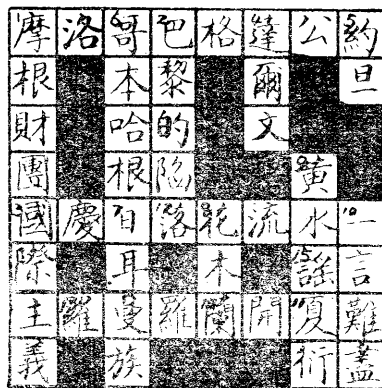 摩洛哥巴格達公約
根本黎爾旦
財哈的文
團根陷黃
國慶日落花流水一
際耳木謠言
主羅曼羅蘭開夏難
義族衍蓋